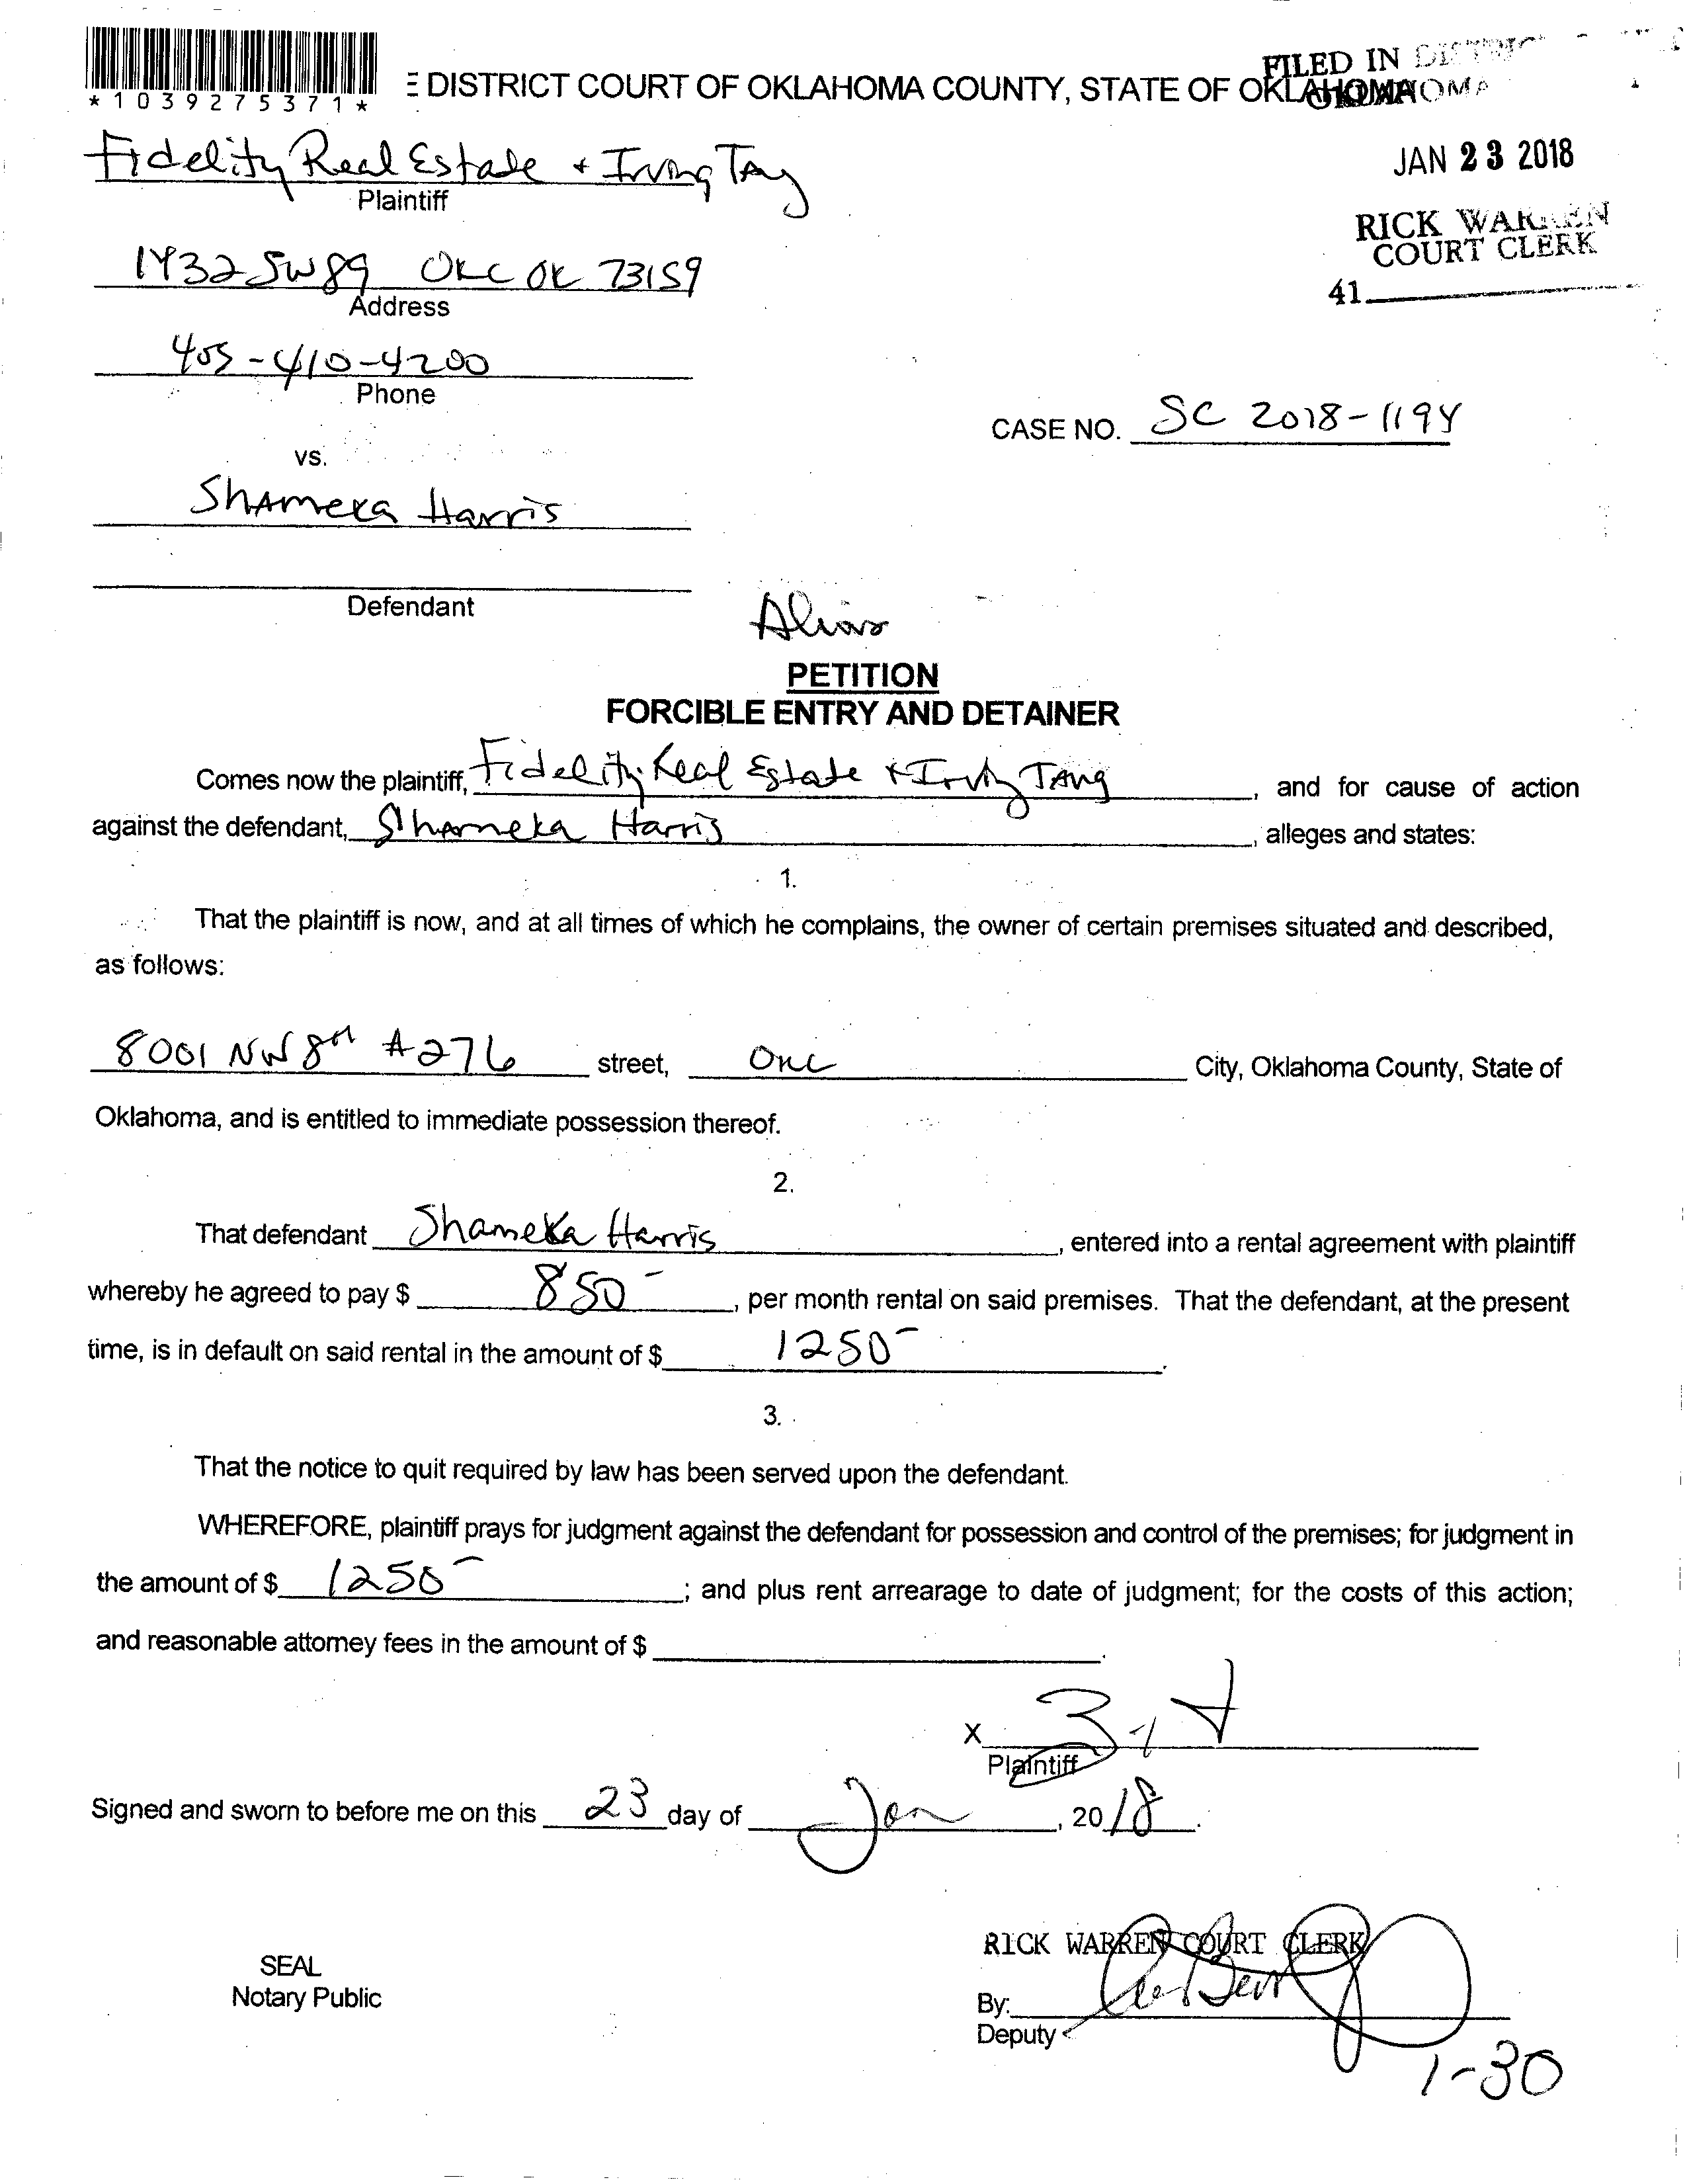 *1039275371*
E DISTRICT COURT OF OKLAHOMA COUNTY, STATE OF OKLAHOMA
FILED IN DISTRICT
OKLAHOMA
JAN 23 2018
RICK WARREN
COURT CLERK
41
Fidelity Real Estate + Irving Tang
Plaintiff
1432 SW 89 OKC OK 73159
Address
405-410-4200
Phone
CASE NO. SC 2018-1194
vs.
Shameka Harris
Defendant
Alias
PETITION
FORCIBLE ENTRY AND DETAINER
Comes now the plaintiff, Fidelity Real Estate + Irving Tang, and for cause of action
against the defendant, Shameka Harris, alleges and states:
1.
That the plaintiff is now, and at all times of which he complains, the owner of certain premises situated and described,
as follows:
8001 NW 8th #276 street, OKC City, Oklahoma County, State of
Oklahoma, and is entitled to immediate possession thereof.
2.
That defendant Shameka Harris, entered into a rental agreement with plaintiff
whereby he agreed to pay $ 850-, per month rental on said premises. That the defendant, at the present
time, is in default on said rental in the amount of $ 1250-.
3.
That the notice to quit required by law has been served upon the defendant.
WHEREFORE, plaintiff prays for judgment against the defendant for possession and control of the premises; for judgment in
the amount of $ 1250-; and plus rent arrearage to date of judgment; for the costs of this action;
and reasonable attorney fees in the amount of $ .
X
Plaintiff
Signed and sworn to before me on this 23 day of Jan, 2018.
RICK WARREN COURT CLERK
SEAL
Notary Public
By:
Deputy
1-30